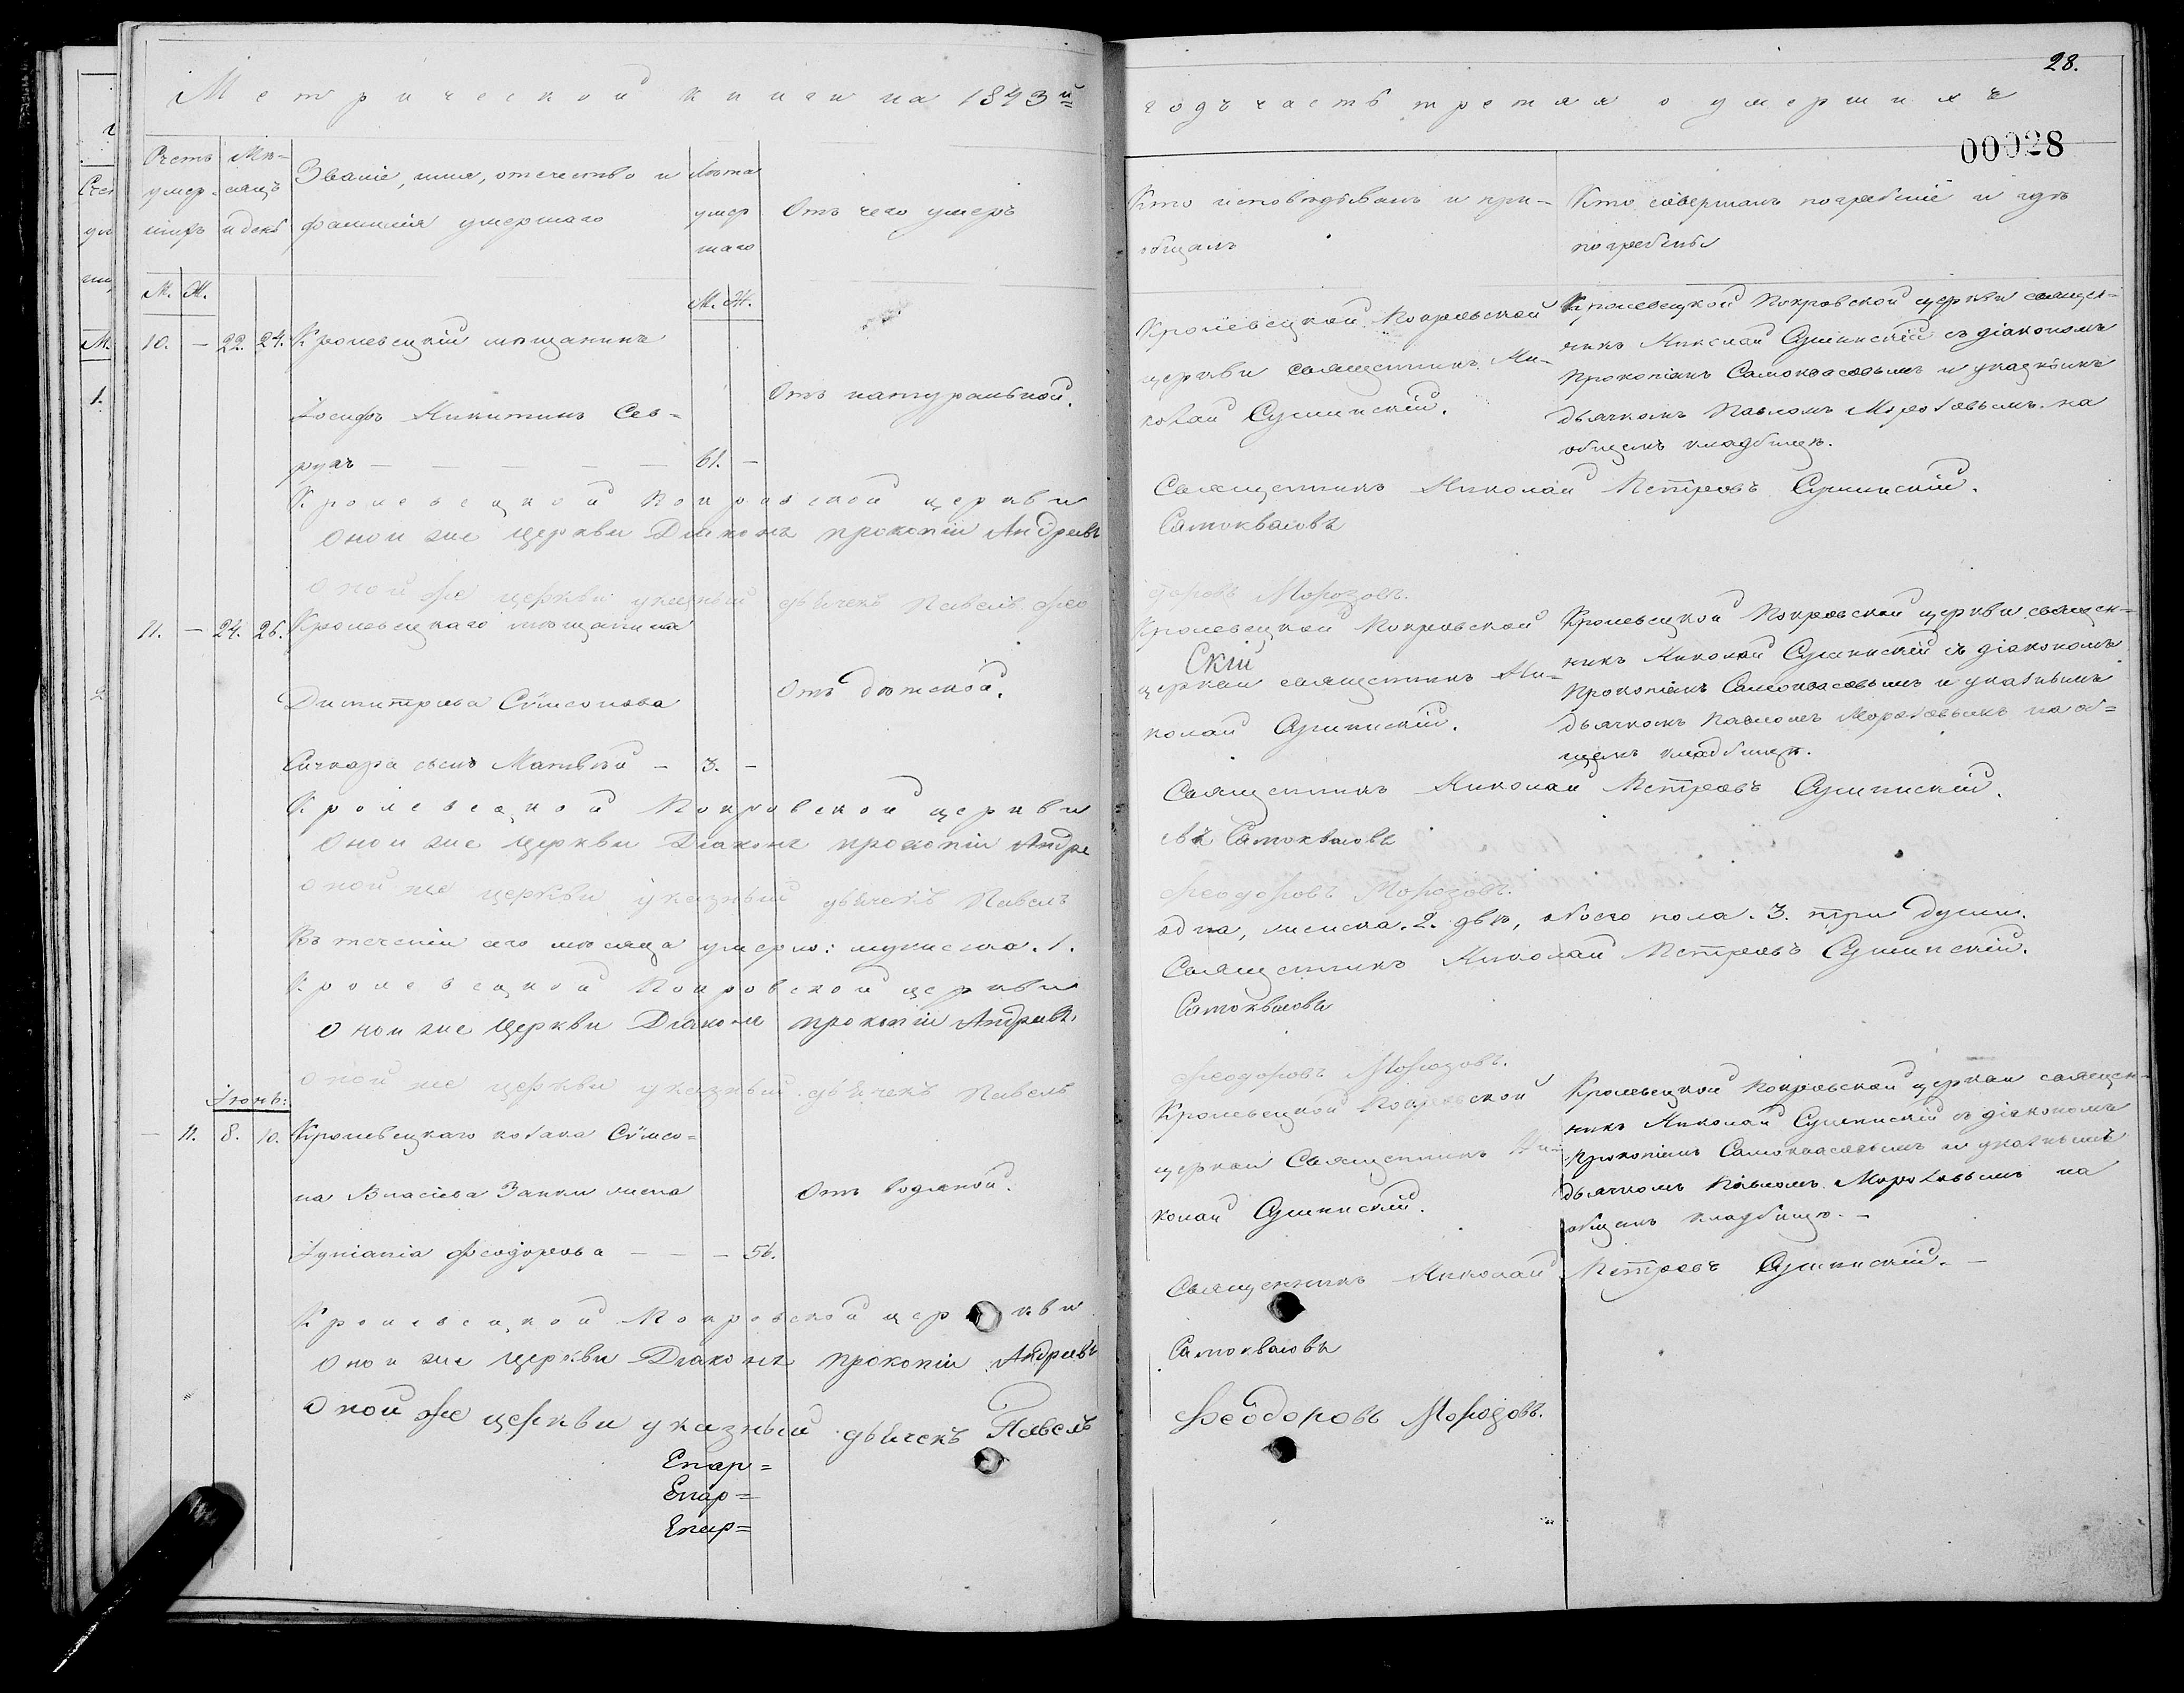 Метрической книги на 1843й
Счетъ умершихъ
Мѣсяцъ и день
Званіе, имя, отечество и
фамилія умершаго
Лѣта умершаго
Отъ чего умеръ
М. Ж.
М. Ж.
10. — 22. 24. Кролевецкій мѣщанинъ
Іосифъ Никитинъ Сев-
рукъ — — — — — 61. —
Отъ натуральной.
Кролевецкой Покровской церкви
Оной же церкви Діаконъ Прокопій Андреевъ
Оной же церкви указный дьячекъ Павелъ Фео
11. — 24. 26. Кролевецкаго мѣщанина
Димитріева Сѵмеонова
Сичкара сынъ Матвѣй — 3. —
Отъ дѣтской.
Кролевецкой Покровской церкви
Оной же церкви Діаконъ Прокопій Андре
Оной же церкви указный дьячекъ Павелъ
Въ теченіи сего мѣсяца умерло: мужеска. 1.
Кролевецкой Покровской церкви
Оной же церкви Діаконъ Прокопій Андреевъ
Оной же церкви указный дьячекъ Павелъ
Іюнь:
— 11. 8. 10. Кролевецкаго козака Сѵмео=
на Власіева Заики жена
Іуліанія Феодорова — — — 56.
Отъ водяной.
Кролевецкой Покровской церкви
Оной же церкви Діаконъ Прокопій Андреевъ
Оной же церкви указный дьячекъ Павелъ
28.
годъ часть третяя о умершихъ
00028
Кто исповѣдывалъ и прі-
общалъ
Кто совершалъ погребеніе и гдѣ
погребены
Кролевецкой Покровской
церкви священникъ Ни-
колай Сушинскій.
Кролевецкой Покровской церкви священ-
никъ Николай Сушинскій съ діакономъ
Прокопіемъ Самоквасовымъ и указнымъ
дьячкомъ Павломъ Морозовымъ на
общемъ кладбищѣ.
Священникъ Николай Петровъ Сушинскій.
Самоквасовъ
доровъ Морозовъ.
Кролевецкой Покровской
скій
церкви священникъ Ни-
колай Сушинскій.
Кролевецкой Покровской церкви священ-
никъ Николай Сушинскій съ діакономъ
Прокопіемъ Самоквасовымъ и указнымъ
дьячкомъ Павломъ Морозовымъ на об=
щемъ кладбищѣ.
Священникъ Николай Петровъ Сушинскій.
евъ Самоквасовъ
Феодоровъ Морозовъ.
одна, женска. 2. двѣ, обоего пола. 3. три души.
Священникъ Николай Петровъ Сушинскій.
Самоквасовъ
Феодоровъ Морозовъ.
Кролевецкой Покровской
церкви Священникъ Ни-
колай Сушинскій.
Кролевецкой Покровской церкви священ-
никъ Николай Сушинскій съ діакономъ
Прокопіемъ Самоквасовымъ и указнымъ
дьячкомъ Павломъ Морозовымъ на
общемъ кладбищѣ. —
Священникъ Николай Петровъ Сушинскій. —
Самоквасовъ
Феодоровъ Морозовъ.